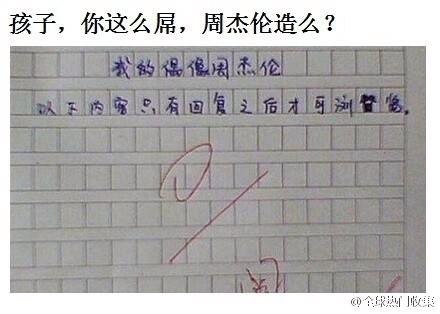 孩子，你这么屌，周杰伦造么？
我的偶像周杰伦
以下内容只有回复之后才可浏览。
阅
@全球热门收集